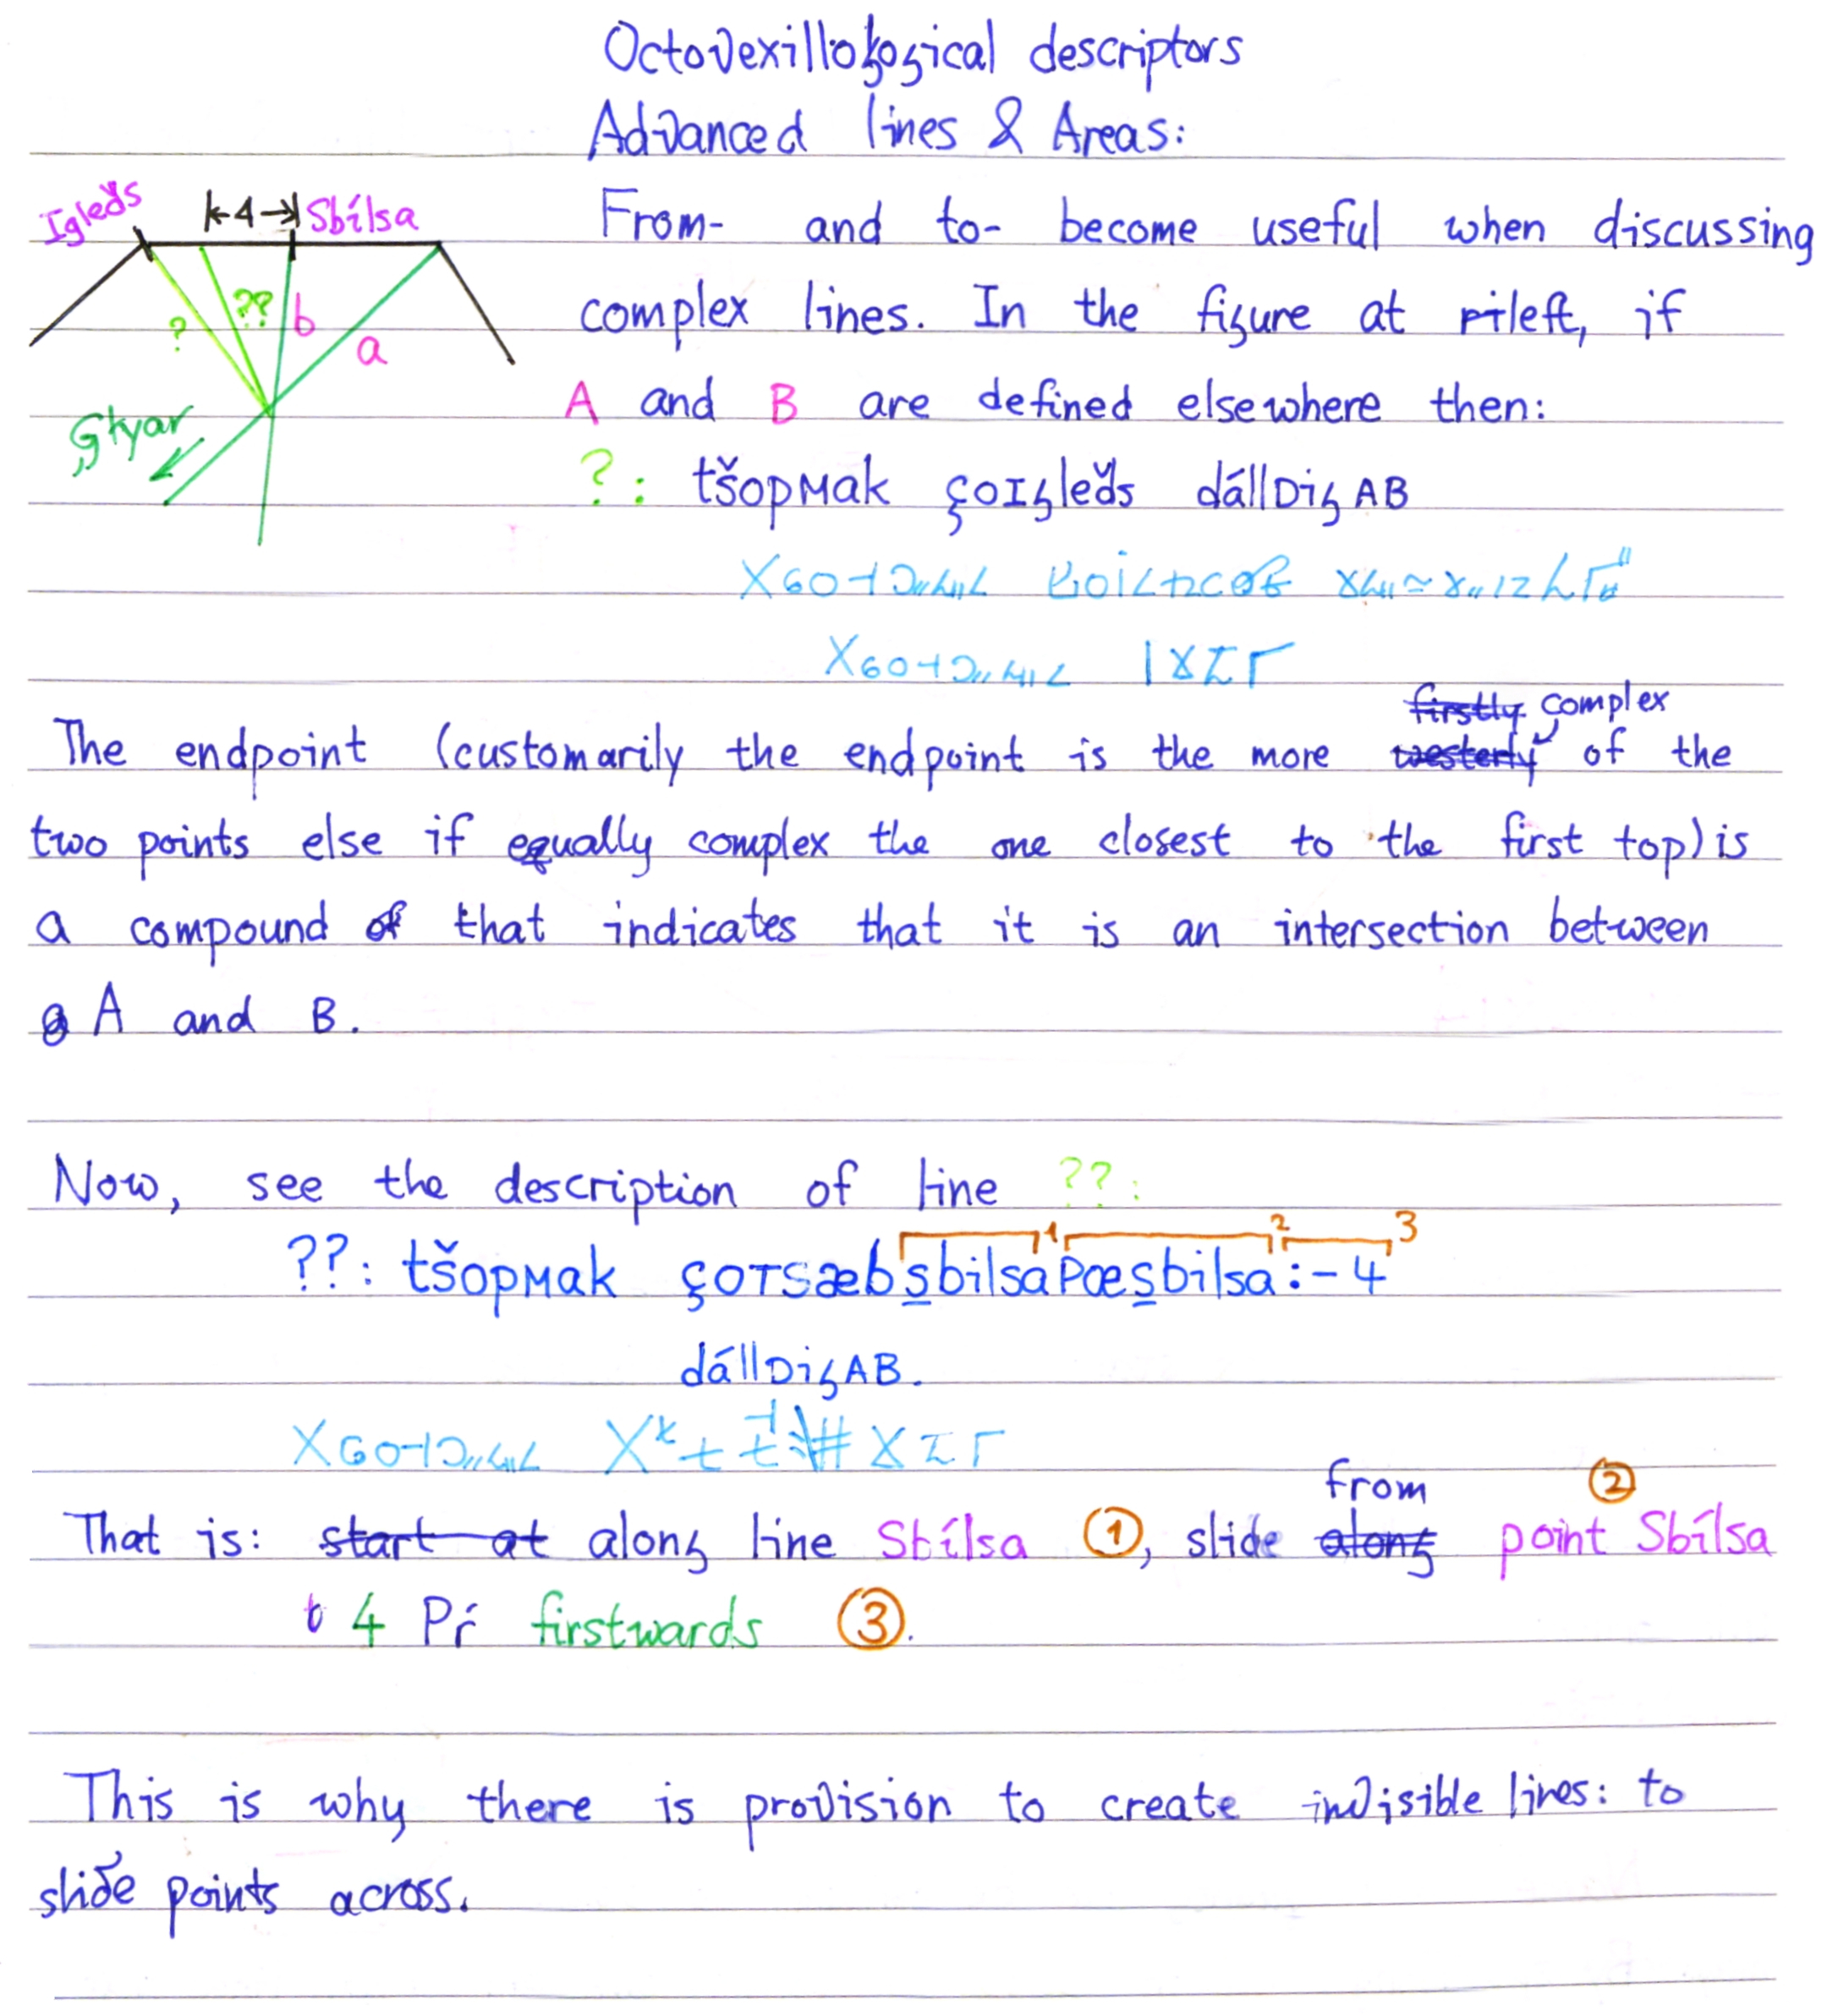 Octovexillological descriptors
Advanced lines & Areas:
Igleds̆
4
Sbílsa
?
??
b
a
Gtyar
From- and to- become useful when discussing
complex lines. In the figure at rileft, if
A and B are defined elsewhere then:
?: tšopмak çoIgleds̆ dállDigAB
firstly complex
The endpoint (customarily the endpoint is the more westerly of the
two points else if equally complex the one closest to the first top) is
a compound of that indicates that it is an intersection between
A and B.
Now, see the description of line ??:
1 2 3
??: tšopмak çoтsæbs̱bilsaPœs̱bilsa:-4
dállDigAB.
from 2
That is: start at along line Sbílsa 1, slide along point Sbílsa
4 Pŕ firstwards 3.
This is why there is provision to create invisible lines: to
slide points across.